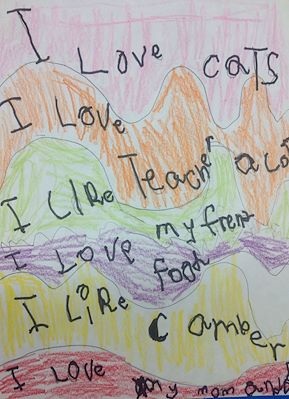 I Love cats
I Love
Teacher a lot
I LIRe my frenz
I LOVe food
I LiRe Camber
I Love my mom and